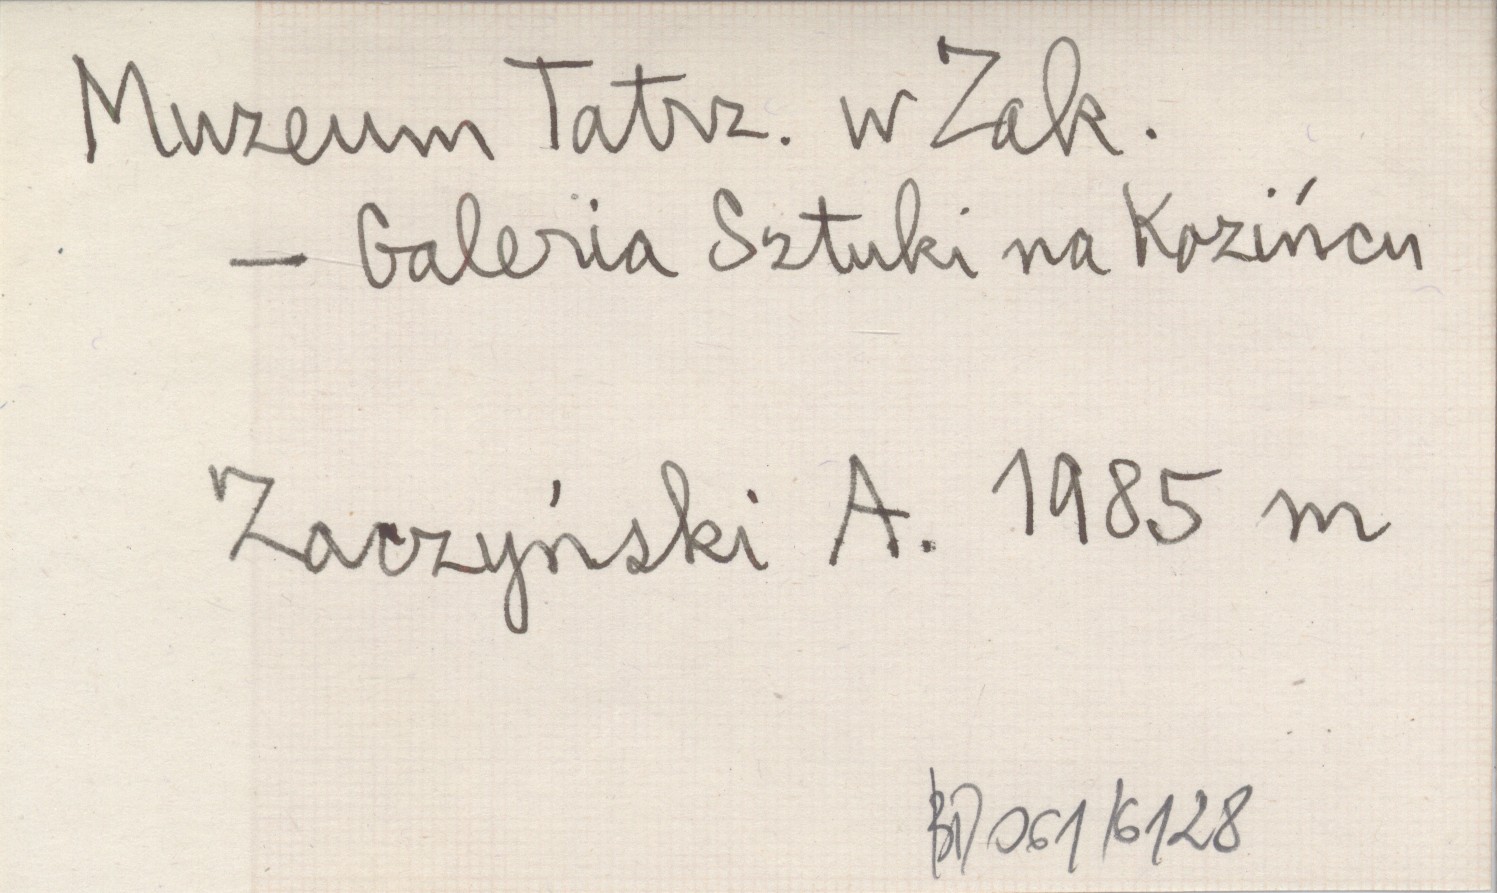 Muzeum Tatrz. w Zak.
– Galeria Sztuki na Kozińcu
Zaczyński A. 1985 m
BD 061/6128